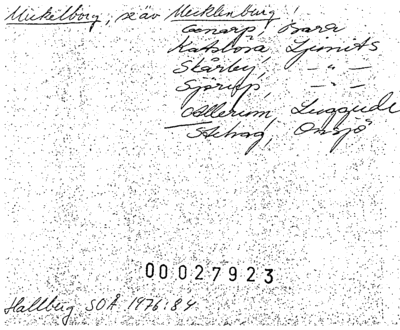 Mickelborg, se äv Mecklenburg!
Genarp, Bara
Katslösa, Ljunits
Skårby, — " —
Sjörup, — " —
Allerum, Luggude
Stehag, Onsjö
00027923
Hallberg SOÅ 1976:84